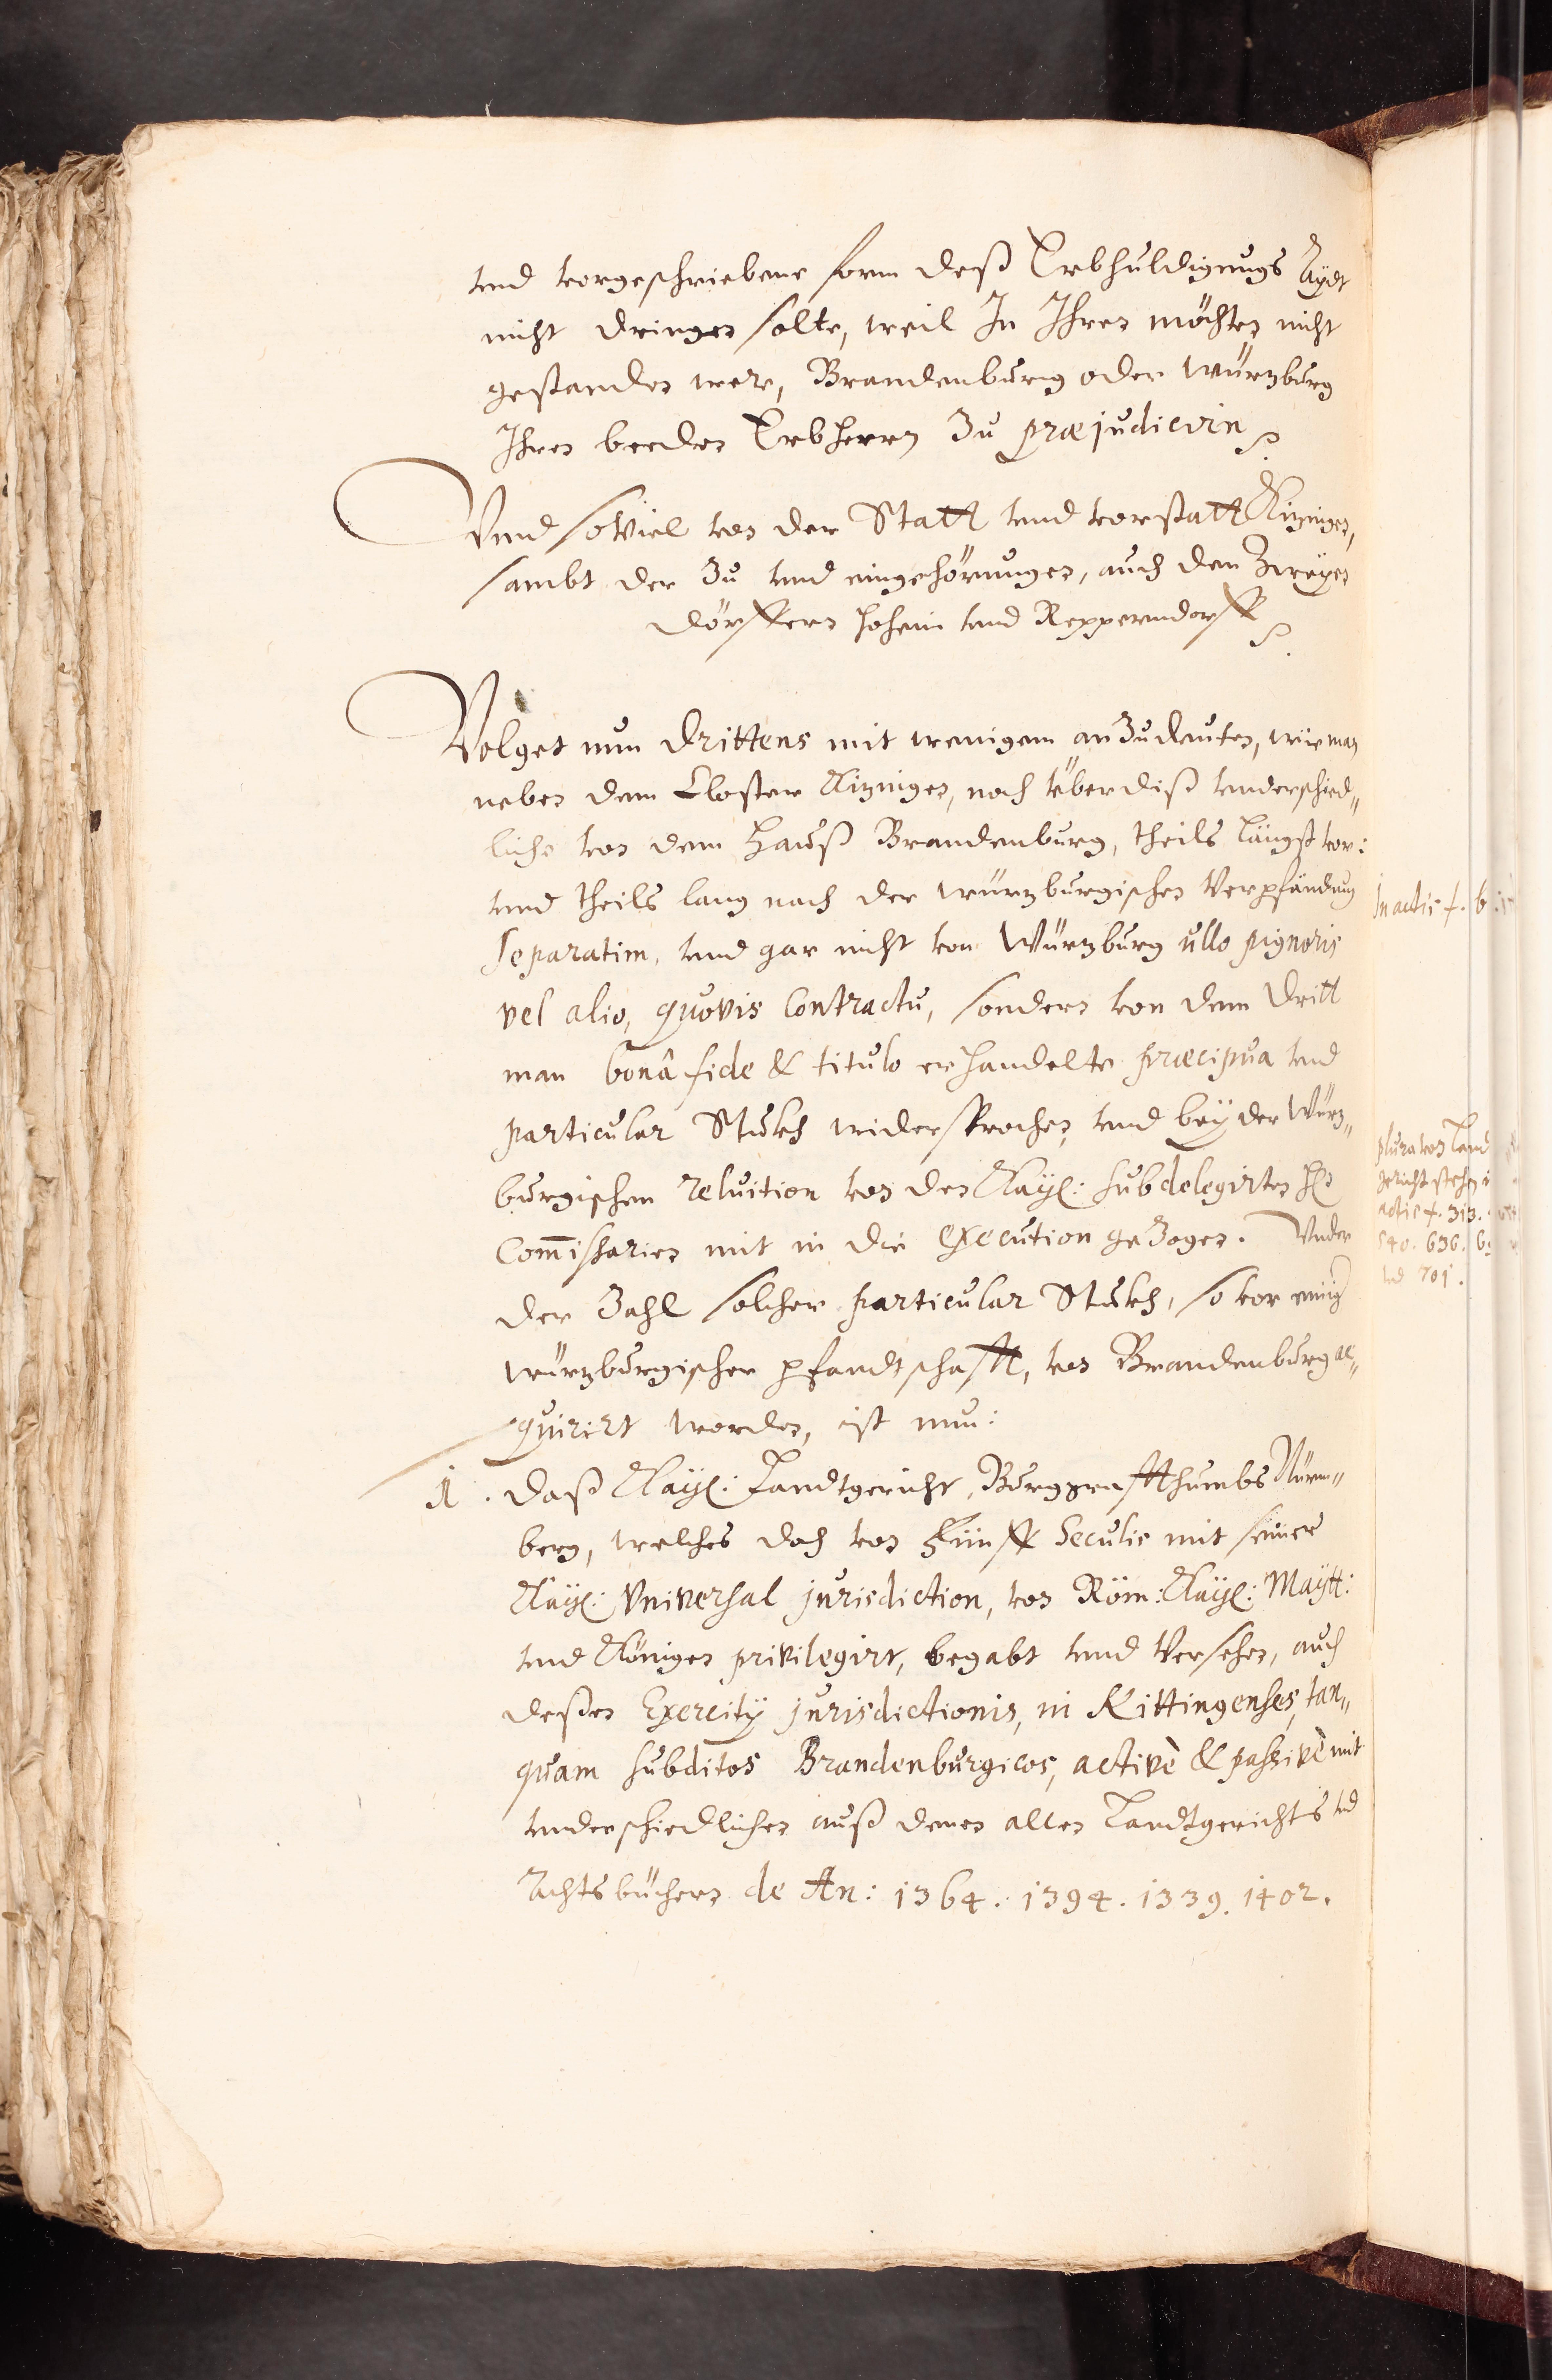 vnd vorgeschriebene form deß Erbhuldigungs Aydt
nicht dringen solte, weil In Ihren mächten nicht
gestanden were, Brandenburg oder Würtzburg
Ihren beeden Erbherrn Zu præjudicirn
Vnnd so Viel von der Statt vnd vorstatt Kitzingen,
sambt der Zu vnd eingehörungen, auch den Zweyen
dörffern Hoheim vnd Repperndorff
Volget nun drittens mit wenigem anZudeuten, wie man
neben dem Closter Kitzingen, noch über diß vnderschied„
liche von dem Hauß Brandenburg, theils längst vor:
vnd theils lang nach der würtzburgischen Verpfändung
separatim, vnd gar nicht von Würtzburg ullo pignoris
vel alio, quovis Contractu, sondern von dem dritt
man bonâ fide & titulo erhandelte præcipua vnd
particular Stukh widersprochen, vnd bey der Würtz„
burgischen reluition von den Kayl: subdelegirten Hn
Commissarien mit in die execution geZogen. Vnder
der Zahl solcher particular Stukh, so vor einig
würtzburgischer pfandtschafft, von Brandenburg ac„
quirirt worden, ist nun:
1. daß Kayl: Landtgericht, Burggraffthumbs Nürm„
berg, welches doch von Fünff Seculis mit seiner
Kayl: Vniversal jurisdiction, von Röm: Kayl: Maytt:
vnd Königen privilegirt, begabt vnd Versehen, auch
deßen Exercity jurisdictionis, in Kittingenses, tan„
quam subditos Brandenburgicos, activè & passivè mit
vnderschiedlichen auß denen alten Landtgerichts vnd
Achtsbüchern de An: 1364. 1394. 1339. 1402.
In actis f. 6
plura von Land
gericht stehen i
actis f. 313.
540. 636. 6
vnd 701.